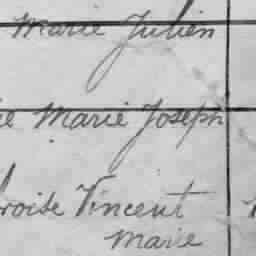 Marie Julien
ie Marie Joseph
roise Vincent
Marie